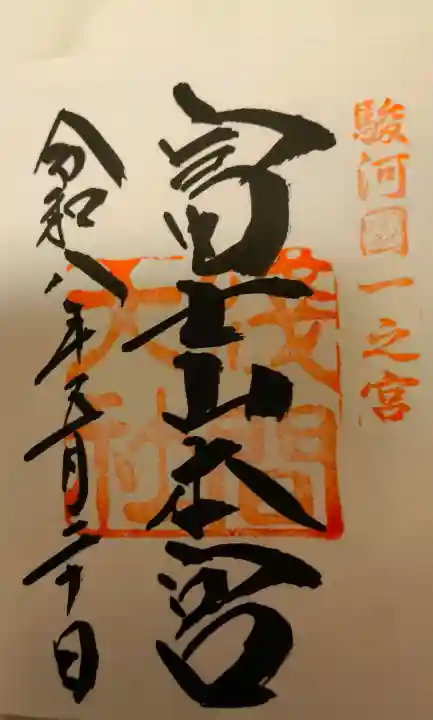 駿河國一之宮
富士山本宮
淺間大社
令和八年五月二十日